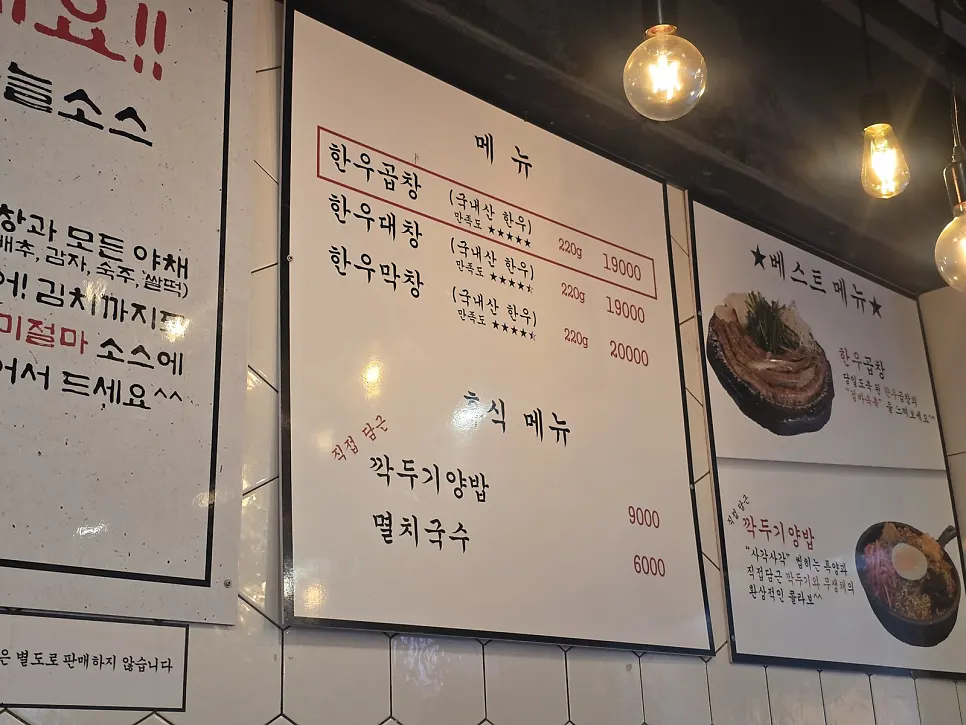 요!!
늘소스
창과 모든 야채
배추, 감자, 숙주, 쌀떡)
어! 김치까지
미절마 소스에
어서 드세요^^
은 별도로 판매하지 않습니다
메뉴
한우곱창 (국내산 한우) 220g 19000
만족도 ★★★★★
한우대창 (국내산 한우) 220g 19000
만족도 ★★★★⯪
한우막창 (국내산 한우) 220g 20000
만족도 ★★★★⯪
식 메뉴
직접 담근
깍두기양밥 9000
멸치국수 6000
★베스트 메뉴★
한우곱창
당일도축 된 한우곱창의
"겉바속촉" 을 느껴보세요^^
직접 담근
깍두기양밥
"사각사각" 씹히는 특양과
직접담근 깍두기와 무생채의
환상적인 콜라보^^